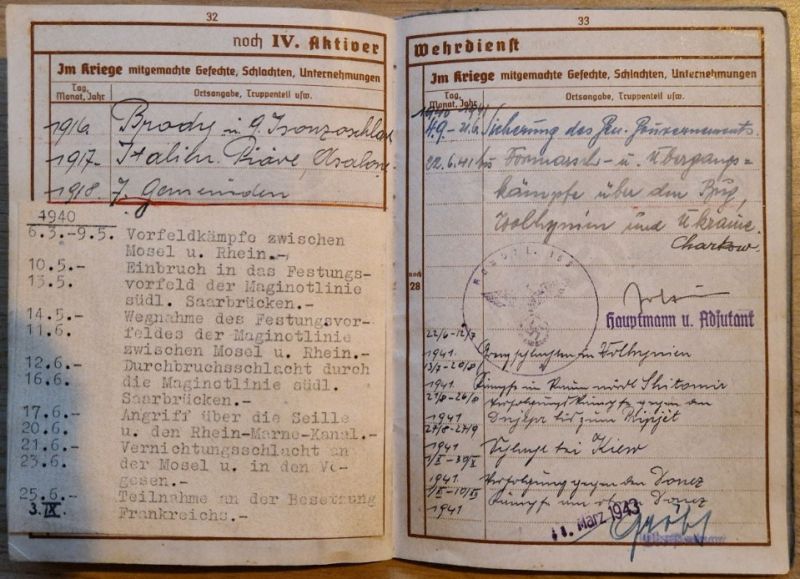 32
noch IV. Aktiver
Im Kriege mitgemachte Gefechte, Schlachten, Unternehmungen
Tag, Monat, Jahr
Ortsangabe, Truppenteil usw.
1916. Brody u. 9. Isonzoschlacht
1917- Italien. Piave, Asalone.
1918. 7. Gemeinden
1940
6.3.-9.5. Vorfeldkämpfe zwischen
Mosel u. Rhein.-
10.5.- Einbruch in das Festungs-
13.5. vorfeld der Maginotlinie
südl. Saarbrücken.-
14.5.- Wegnahme des Festungsvor-
11.6. feldes der Maginotlinie
zwischen Mosel u. Rhein.-
12.6.- Durchbruchsschlacht durch
16.6. die Maginotlinie südl.
Saarbrücken.-
17.6.- Angriff über die Seille
20.6. u. den Rhein-Marne-Kanal.-
21.6.- Vernichtungsschlacht an
23.6. der Mosel u. in den Vo-
gesen.-
25.6.- Teilnahme an der Besetzung
3.IX. Frankreichs.-
33
Wehrdienst
Im Kriege mitgemachte Gefechte, Schlachten, Unternehmungen
Tag, Monat, Jahr
Ortsangabe, Truppenteil usw.
1940-1941
4.9.-21.6. Sicherung des Gen. Gouvernements.
22.6.41 bis Vormarsch- u. Übergangs-
kämpfe über den Bug,
Wolhynien und Ukraine.
Charkow.
noch
28
Hauptmann u. Adjutant
22/6-12/7
1941. Grenzschlachten in Wolhynien
13/7-20/8
1941. Kämpfe im Raum südl. Shitomir
21/8-26/8 Verfolgungskämpfe gegen den
1941 Dnjepr bis zum Pripjet
27/8-27/9
1941 Schlacht bei Kiew
1/X-30/XI
1941 Verfolgung gegen den Donez
1941 Kämpfe am Donez
1. März 1943